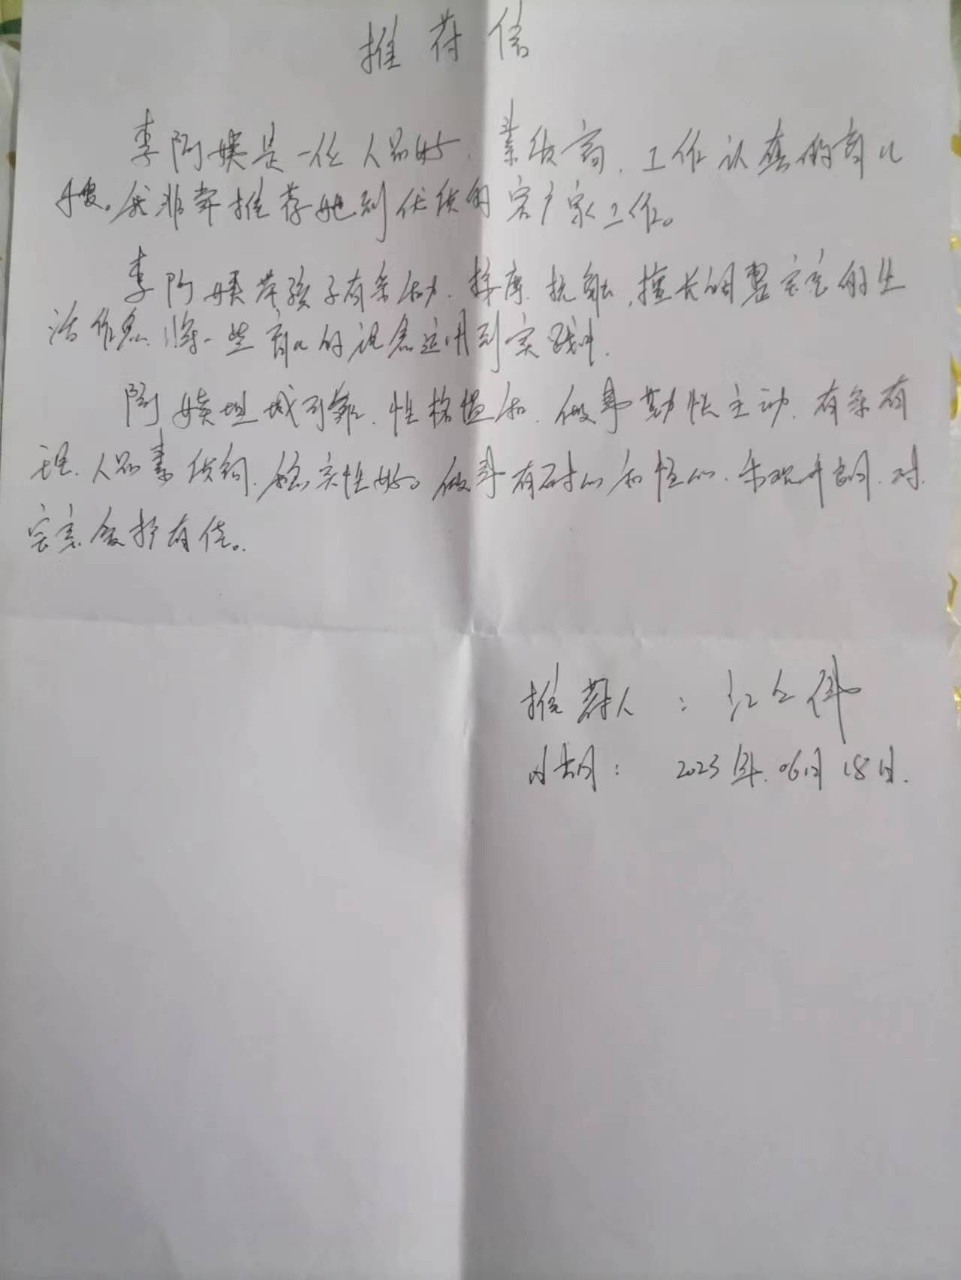 推荐信
李阿姨是一位人品好、素质高、工作认真的育儿
嫂。我非常推荐她到优质的客户家工作。
李阿姨带孩子有亲和力、擅长调整宝宝的生
活作息、将一些育儿的观念运用到实践中.
阿姨坦诚可靠、性格温和、做事勤快主动、有条有
理、人品素质高、稳定性好。做事有耐心和恒心、乐观开朗、对
宝宝爱护有佳。
推荐人：江
日期： 2023年.06月18日.